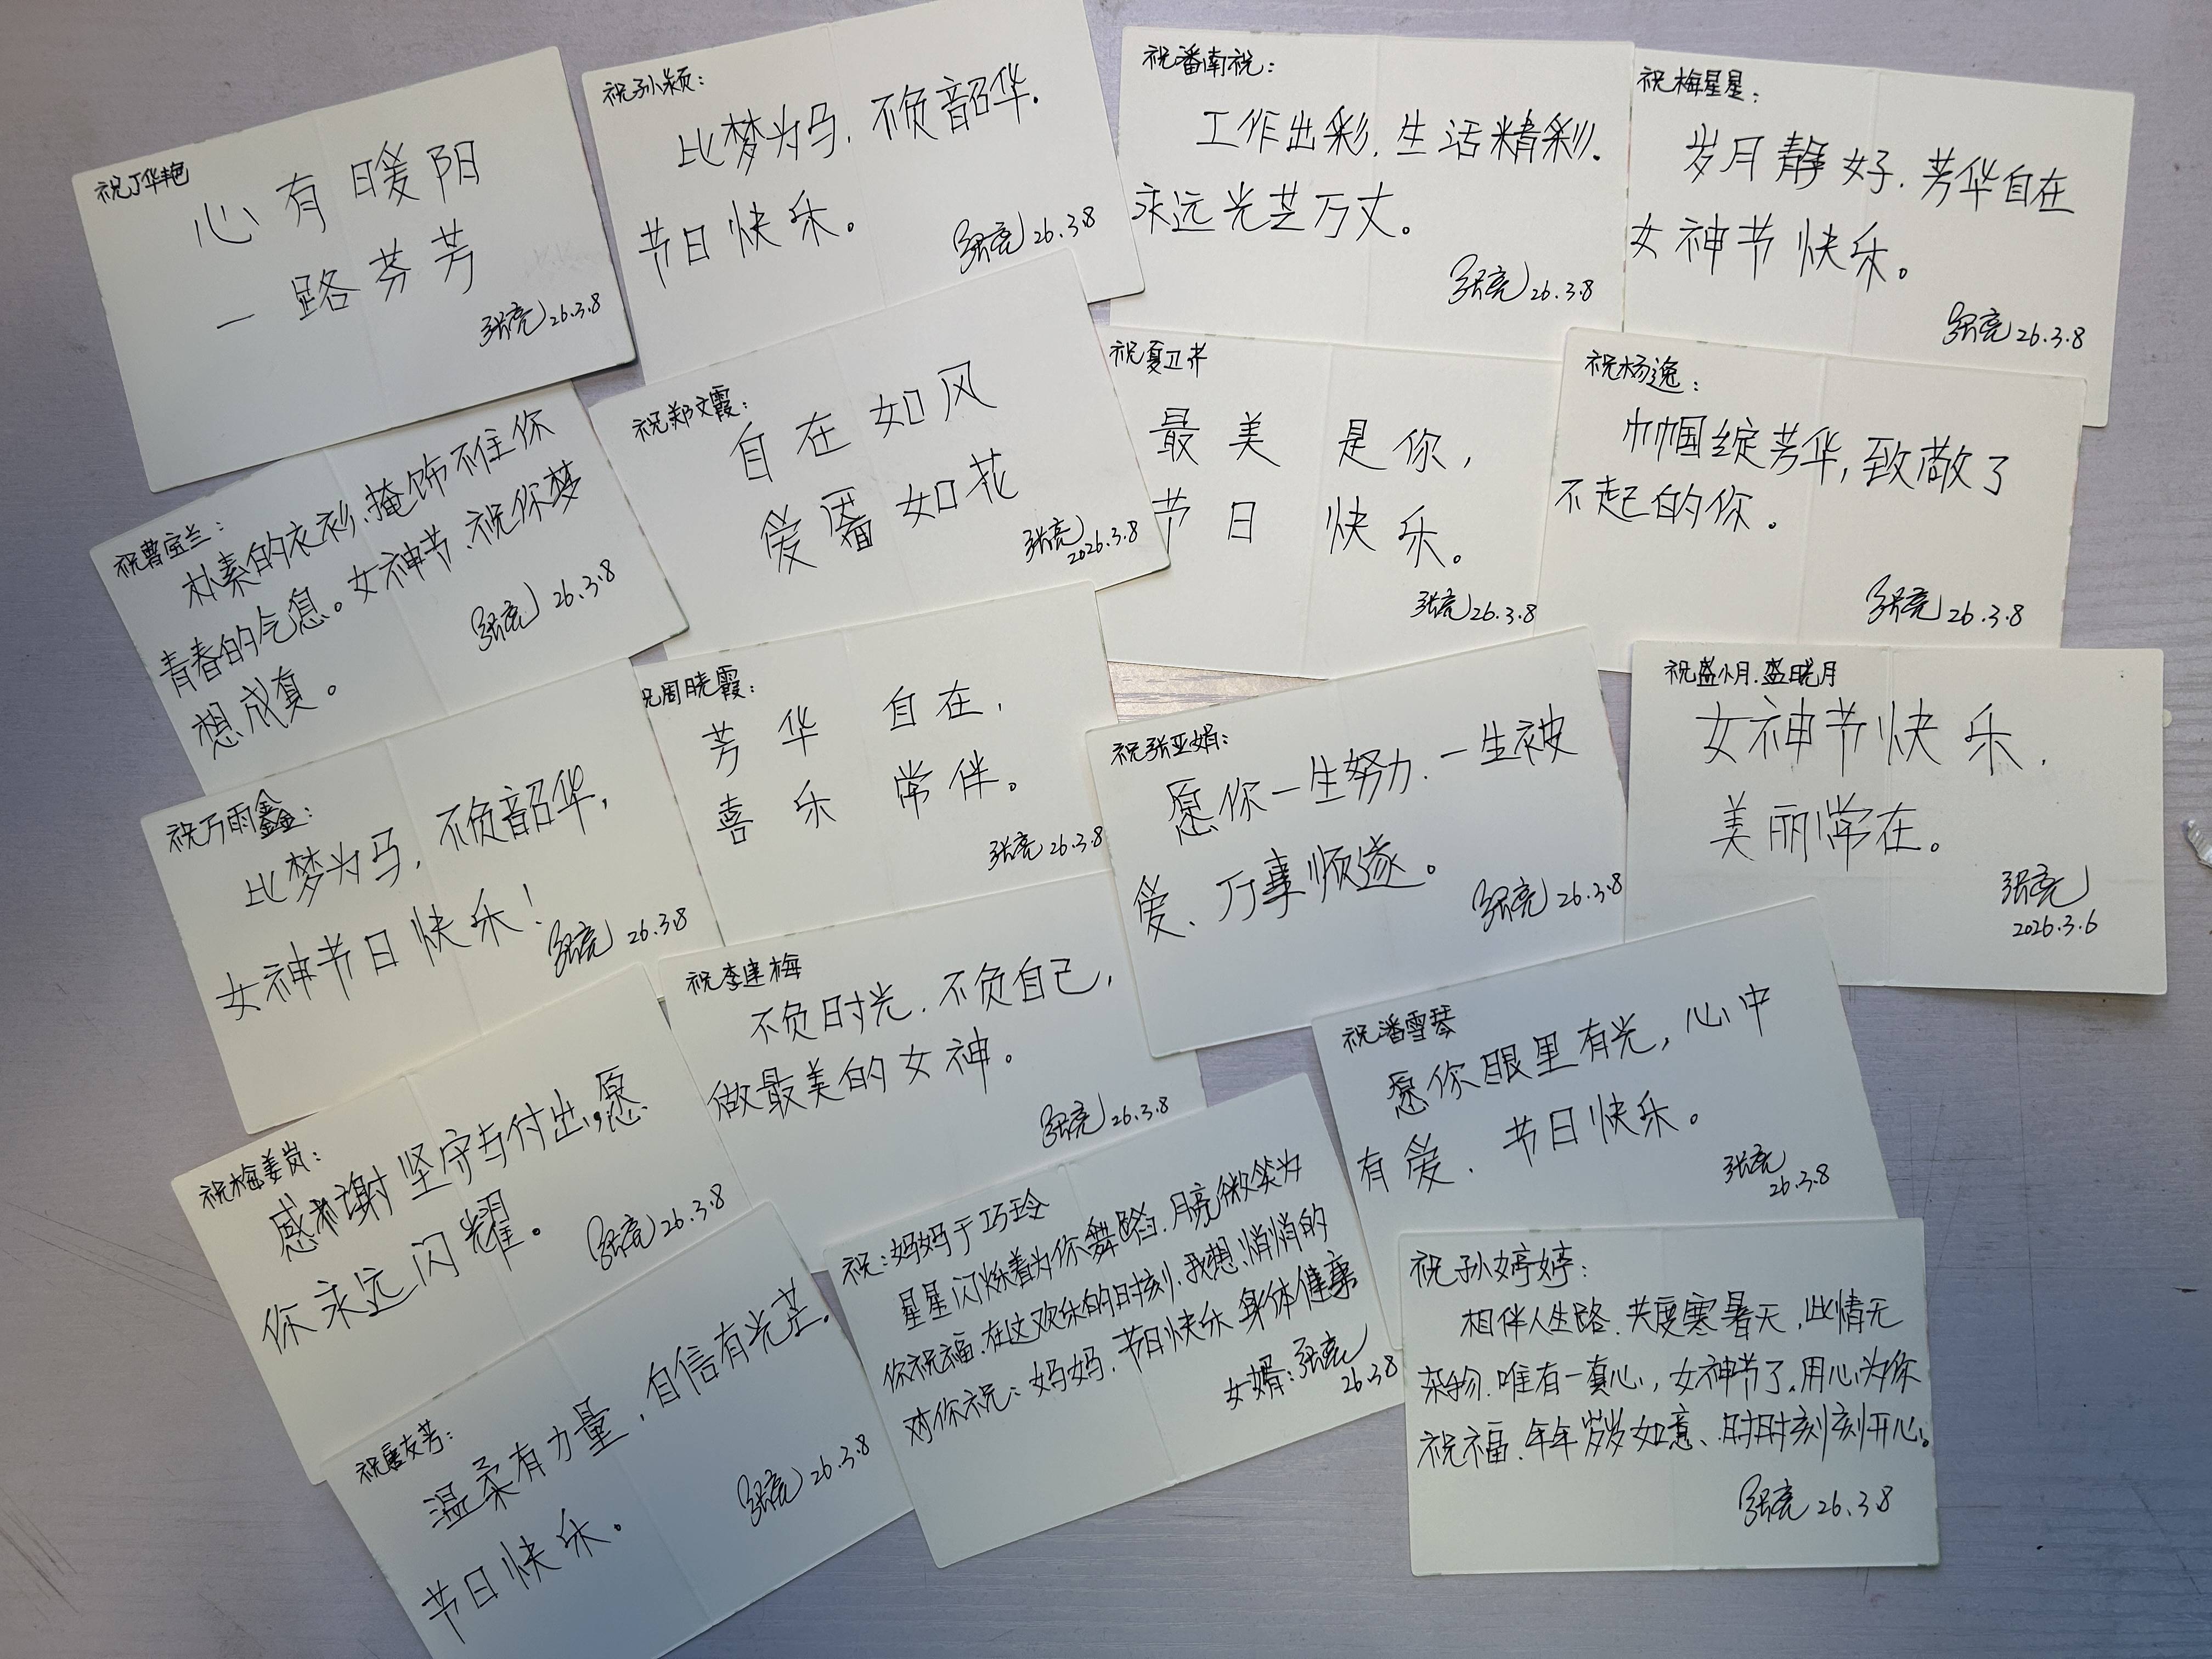 祝丁华艳
心有暖阳
一路芬芳
张亮 26.3.8
祝孙颖：
比梦为马，不负韶华.
节日快乐。
张亮 26.3.8
祝潘南祝：
工作出彩，生活精彩.
永远光芒万丈。
张亮 26.3.8
祝梅星星：
岁月静好，芳华自在
女神节快乐。
张亮 26.3.8
祝曹宝兰：
朴素的衣衫、掩饰不住你
青春的气息。女神节、祝你梦
想成真。
张亮 26.3.8
祝郑文霞：
自在如风
爱著如花
张亮
2026.3.8
祝夏卫芹
最美是你，
节日快乐。
张亮 26.3.8
祝杨逸：
巾帼绽芳华，致敬了
不起的你。
张亮 26.3.8
祝万雨鑫：
比梦为马，不负韶华，
女神节日快乐！
张亮 26.3.8
祝周晓霞：
芳华自在，
喜乐常伴。
张亮 26.3.8
祝张亚娟：
愿你一生努力，一生被
爱、万事顺遂。
张亮 26.3.8
祝盛小月.盛晓月
女神节快乐，
美丽常在。
张亮
2026.3.6
祝梅姜岚：
感谢坚守与付出，愿
你永远闪耀。
张亮 26.3.8
祝李建梅
不负时光，不负自己，
做最美的女神。
张亮 26.3.8
祝潘雪琴
愿你眼里有光，心中
有爱、节日快乐。
张亮
26.3.8
祝唐友芳：
温柔有力量，自信有光芒.
节日快乐。
张亮 26.3.8
祝：妈妈于巧玲
星星闪烁着为你舞蹈，月亮微笑为
你祝福，在这欢乐的时刻，我想、悄悄的
对你祝：妈妈，节日快乐 身体健康
女婿：张亮
26.3.8
祝孙婷婷：
相伴人生路，共度寒暑天，此情无
杂物，唯有一真心，女神节了，用心为你
祝福，年年岁岁如意、时时刻刻开心。
张亮 26.3.8